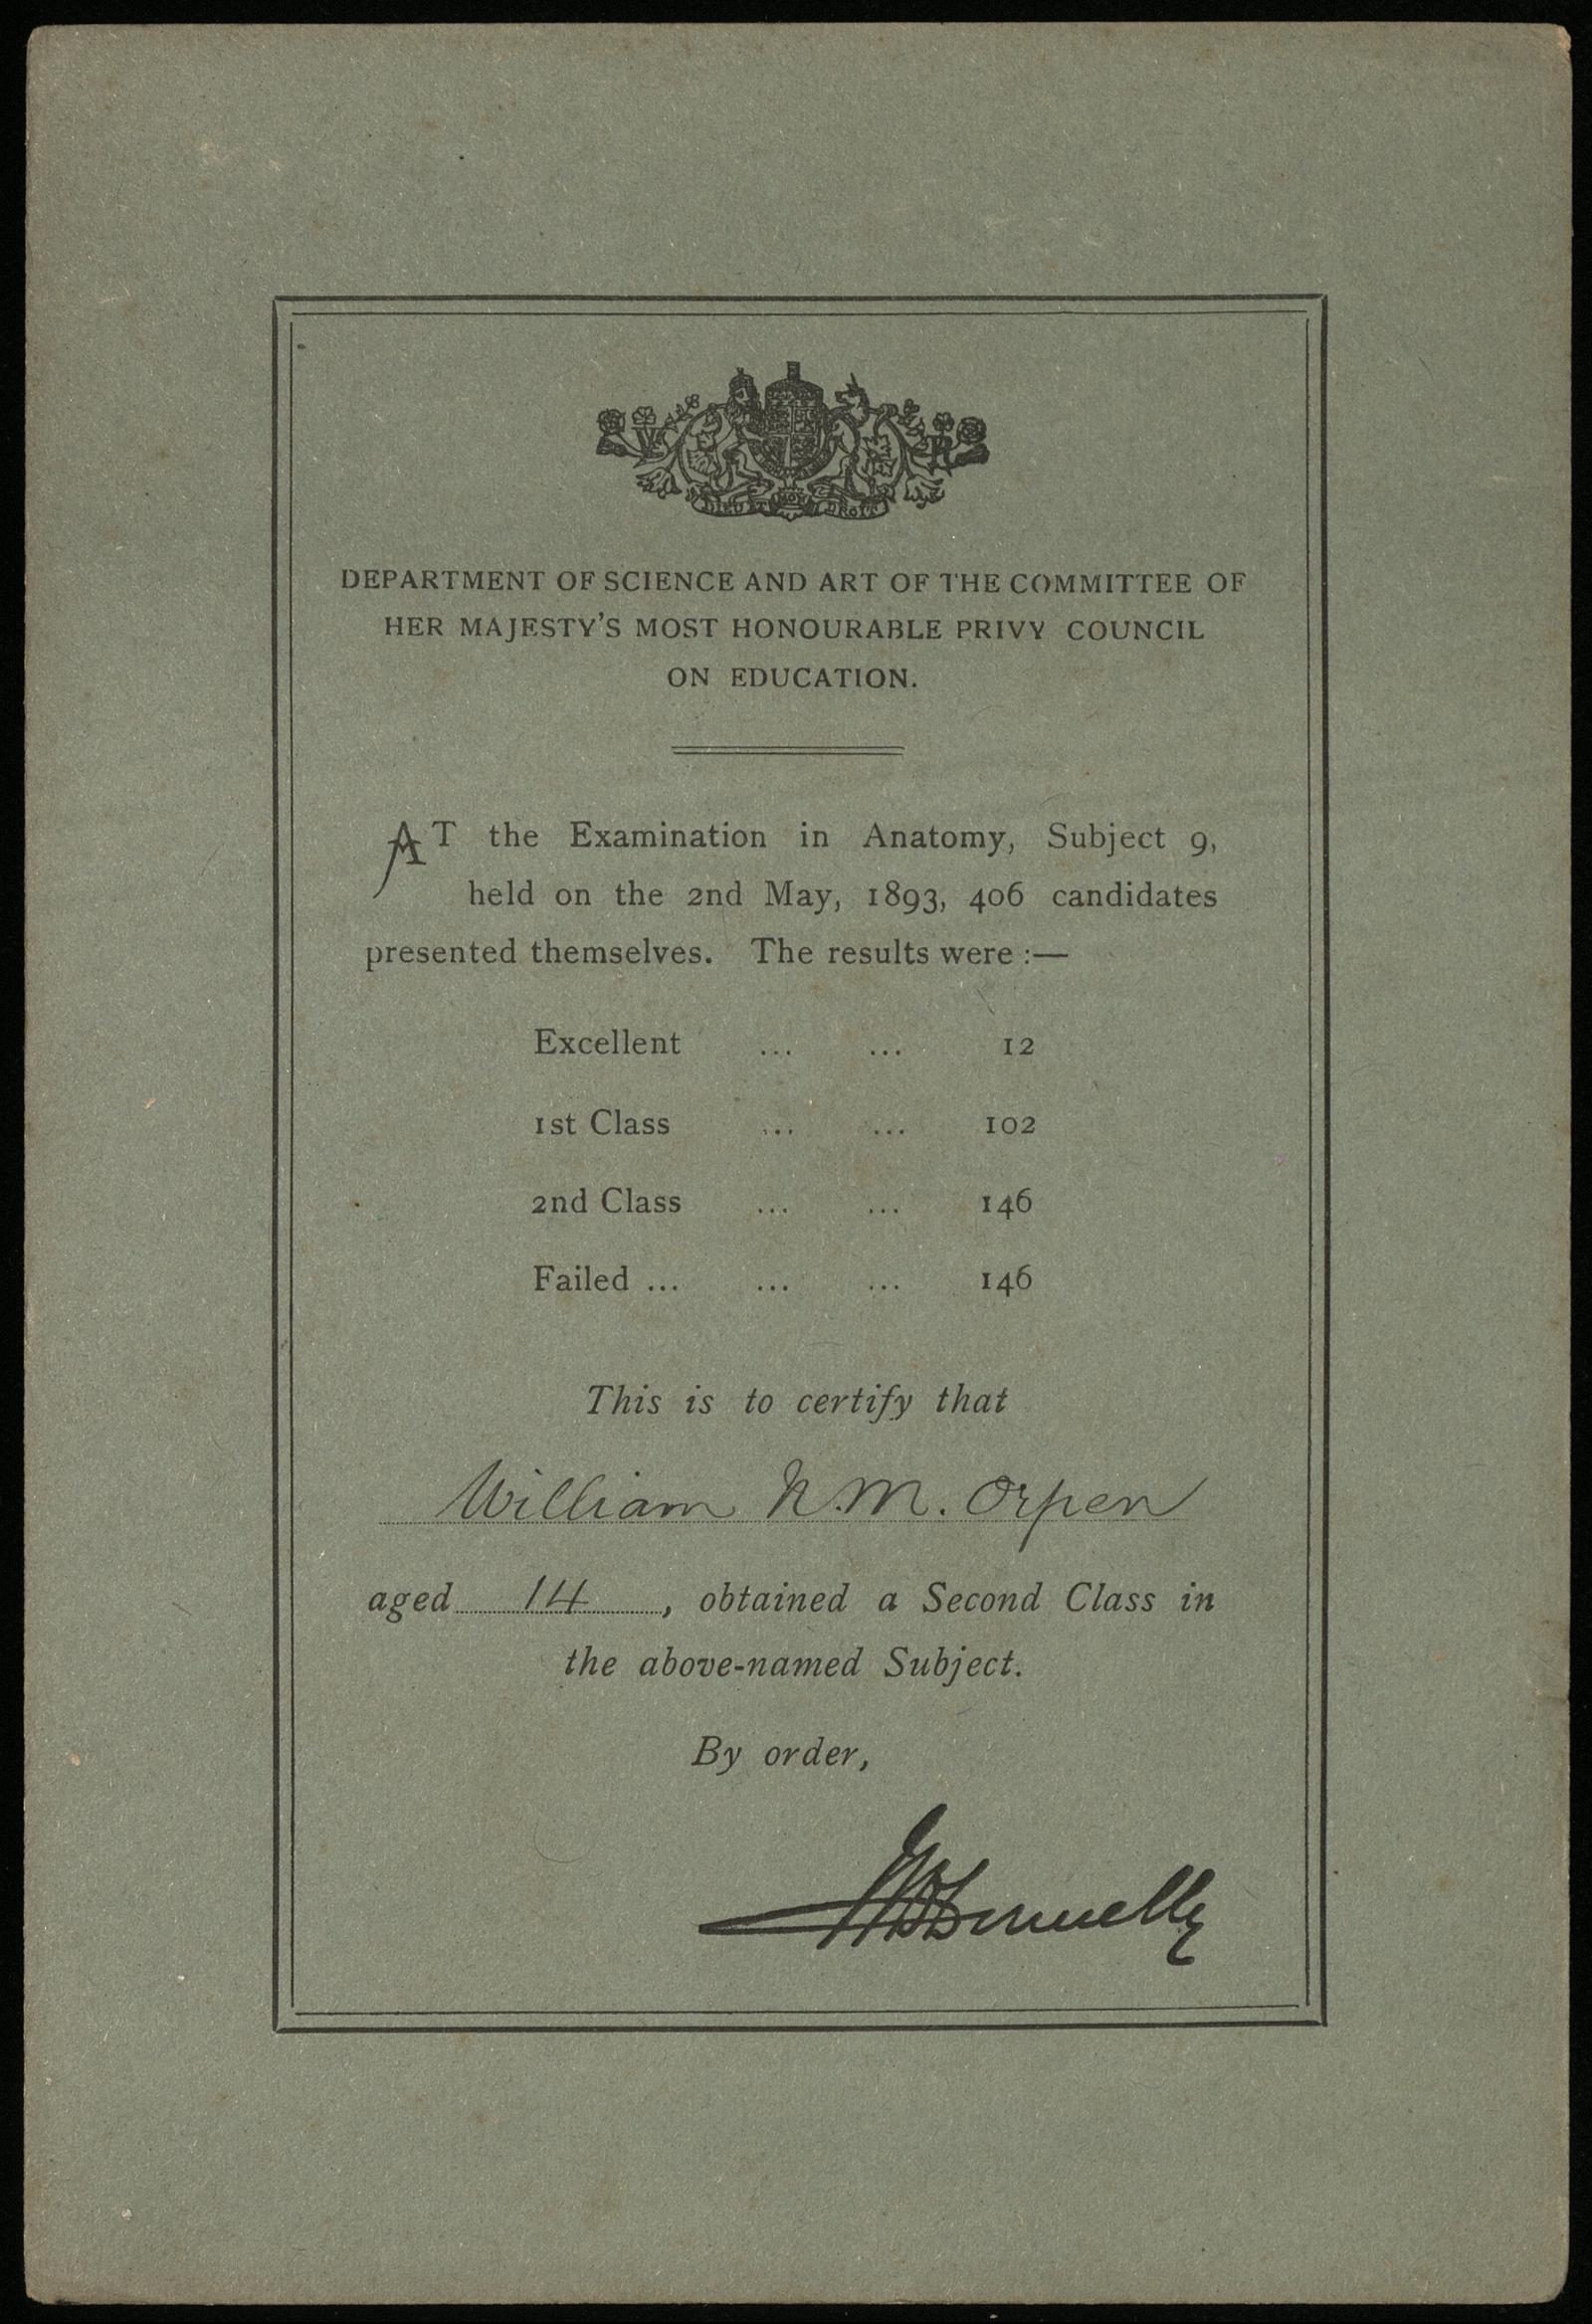 DIEU ET MON DROIT
DEPARTMENT OF SCIENCE AND ART OF THE COMMITTEE OF
HER MAJESTY'S MOST HONOURABLE PRIVY COUNCIL
ON EDUCATION.
AT the Examination in Anatomy, Subject 9,
held on the 2nd May, 1893, 406 candidates
presented themselves. The results were :—
Excellent ... ... 12
1st Class ... ... 102
2nd Class ... ... 146
Failed ... ... ... 146
This is to certify that
William N.M. Orpen
aged 14, obtained a Second Class in
the above-named Subject.
By order,
Donnelly